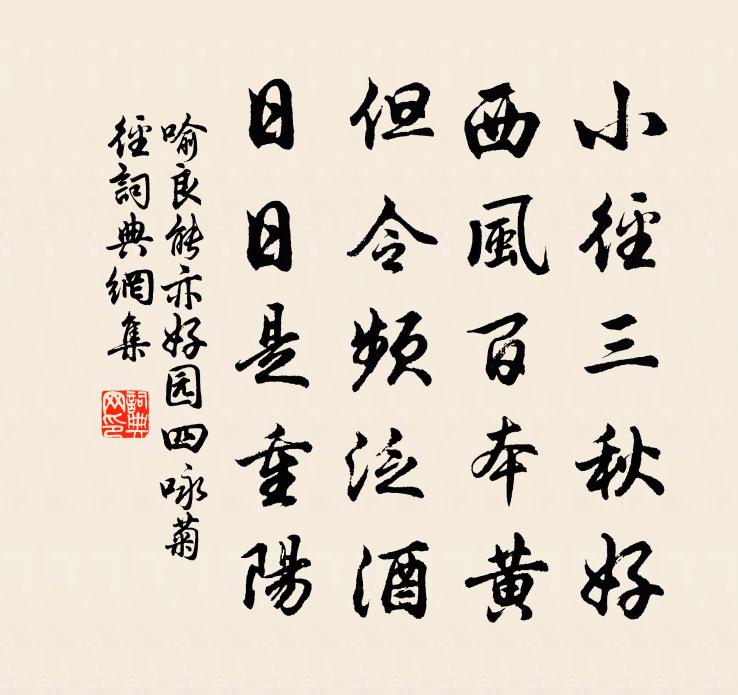 小徑三秋好
西風百本黄
但令頻泛酒
日日是重陽
喻良能亦好园四咏菊
徑詞典網集
詞典网印